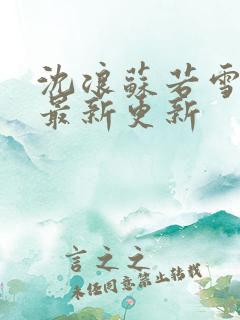 沈浪蘇若雪
最新更新
言之之
未经同意禁止转载